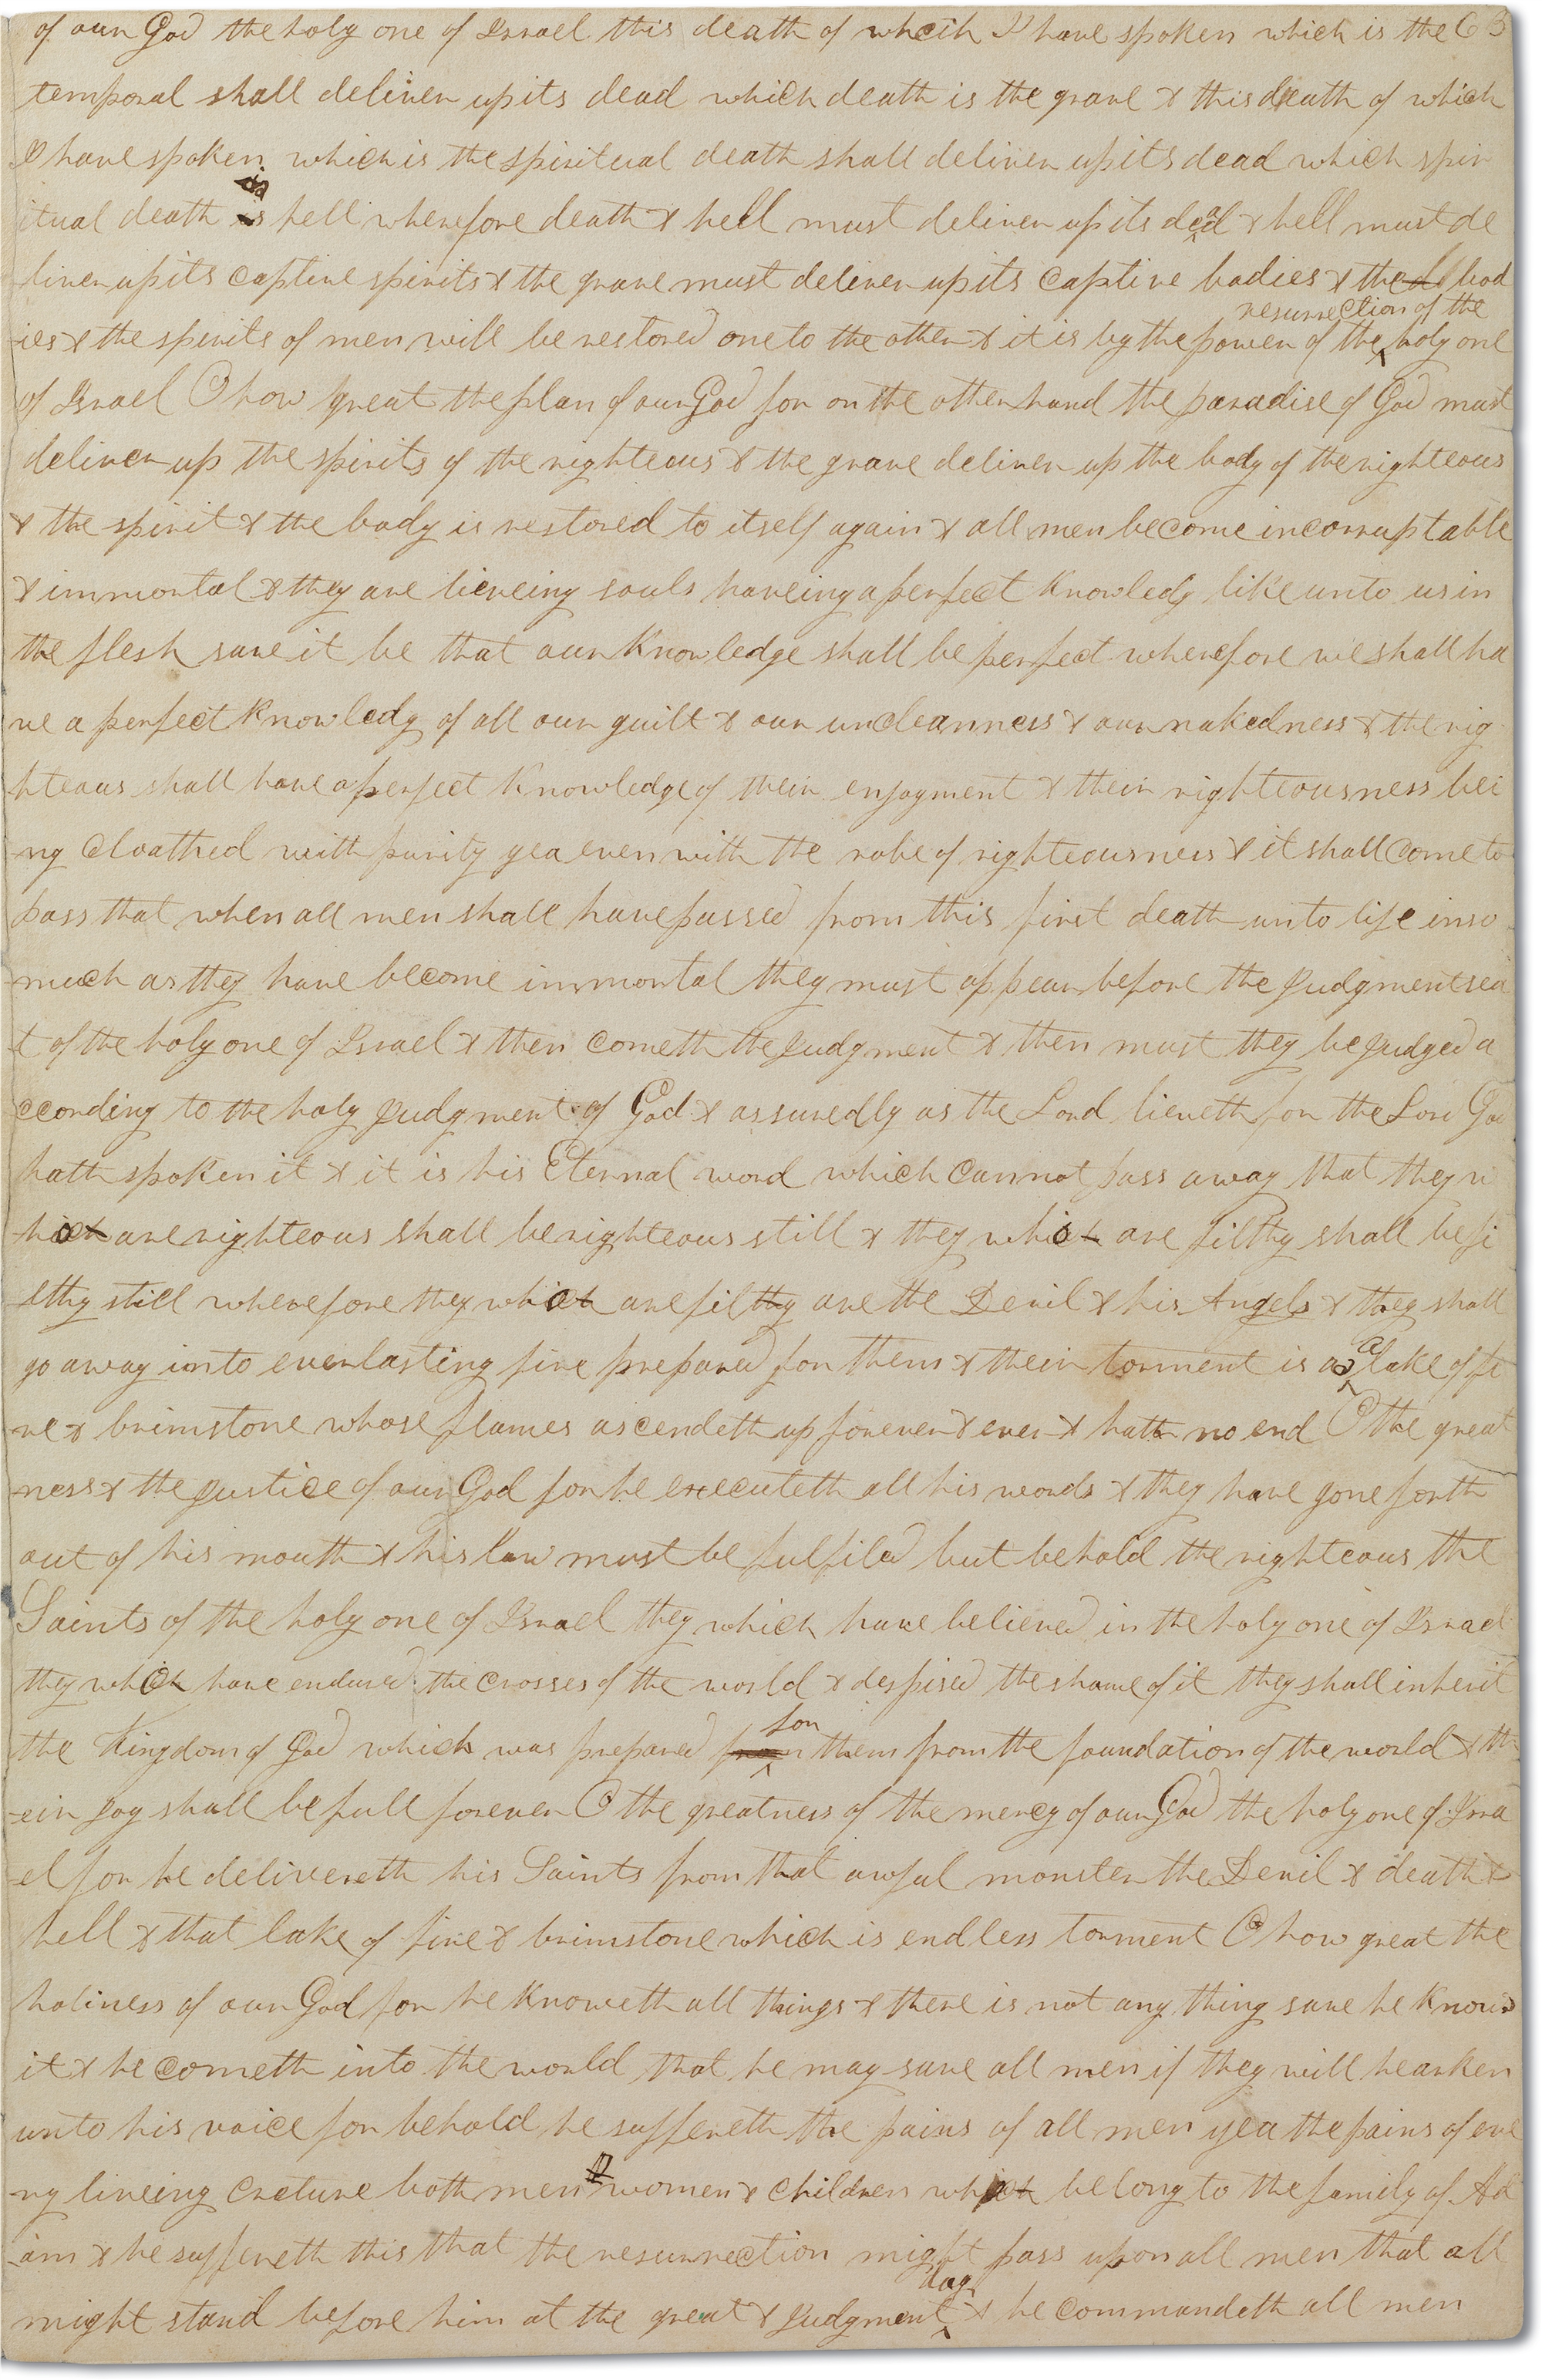 of our God the holy one of Israel this death of which I have spoken which is the 63
temporal shall deliver up its dead which death is the grave & this death of which
I have spoken which is the spiritual death shall deliver up its dead which spir
itual death is hell wherefore death & hell must deliver up its dead & hell must de
liver up its captive spirits & the grave must deliver up its captive bodies & the bod
resurrection of the
ies & the spirits of men will be restored one to the other & it is by the power of the holy one
of Israel O how great the plan of our God for on the other hand the paradise of God must
deliver up the spirits of the righteous & the grave deliver up the body of the righteous
& the spirit & the body is restored to itself again & all men become incorruptable
& immortal & they are liveing souls haveing a perfect knowledg like unto us in
the flesh save it be that our knowledge shall be perfect wherefore we shall ha
ve a perfect knowledg of all our guilt & our uncleanness & our nakedness & the rig
hteous shall have a perfect knowledge of their enjoyment & their righteousness bei
ng cloathed with purity yea even with the robe of righteousness & it shall come to
pass that when all men shall have passed from this first death unto life inso
much as they have become immortal they must appear before the judgment sea
t of the holy one of Israel & then cometh the judgment & then must they be judged a
ccording to the holy judgment of God & assuredly as the Lord liveth for the Lord God
hath spoken it & it is his Eternal word which cannot pass away that they w
hich are righteous shall be righteous still & they which are filthy shall be fi
lthy still wherefore they which are filthy are the Devil & his Angels & they shall
a
go away into everlasting fire prepared for them & their torment is as lake of fi
re & brimstone whose flames ascendeth up forever & ever & hath no end O the great
ness & the justice of our God for he executeth all his words & they have gone forth
out of his mouth & his law must be fulfiled but behold the righteous the
Saints of the holy one of Israel they which have believed in the holy one of Israel
they which have endured the crosses of the world & despised the shame of it they shall inherit
for
the Kingdom of God which was prepared them from the foundation of the world & th
eir joy shall be full forever O the greatness of the mercy of our God the holy one of Isra
el for he delivereth his Saints from that awful monster the Devil & death &
hell & that lake of fire & brimstone which is endless torment O how great the
holiness of our God for he knoweth all things & there is not any thing save he knows
it & he cometh into the world that he may save all men if they will hearken
unto his voice for behold he suffereth the pains of all men yea the pains of eve
ry liveing creture both men women & children which belong to the family of Ad
am & he suffereth this that the resurrection might pass upon all men that all
day
might stand before him at the great & judgment & he commandeth all men